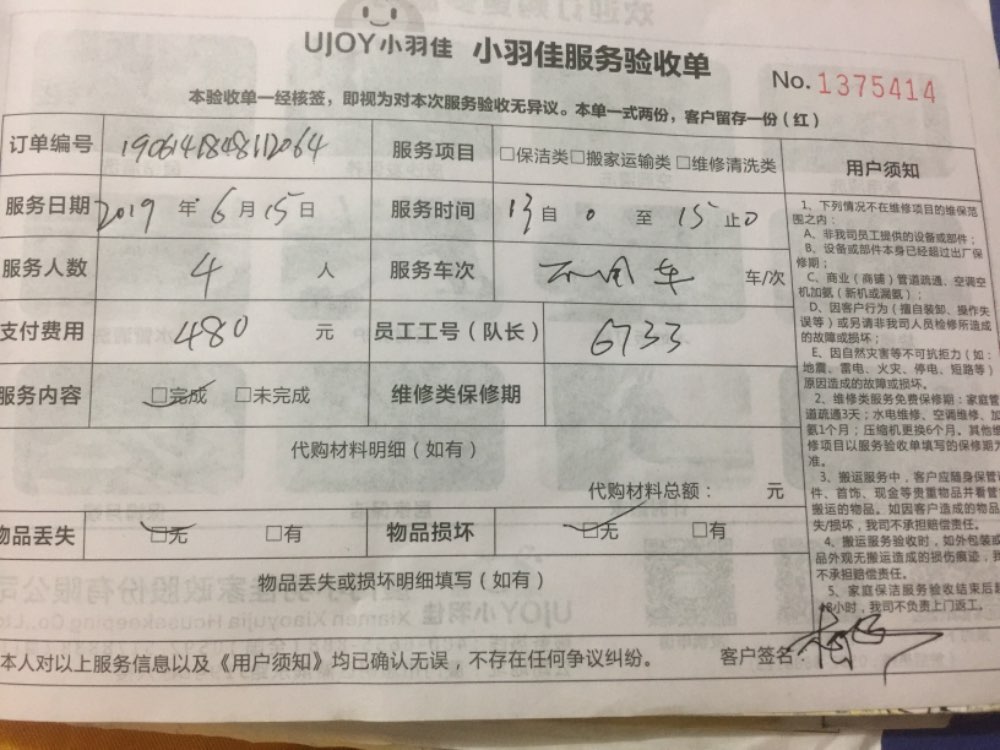 UJOY小羽佳 小羽佳服务验收单
No.1375414
本验收单一经核签，即视为对本次服务验收无异议。本单一式两份，客户留存一份（红）
订单编号 服务项目 □保洁类□搬家运输类□维修清洗类
服务日期 2019 年 6 月 15 日 服务时间 13 自 0 至 15 止 0
服务人数 4 人 服务车次 车/次
支付费用 480 元 员工工号（队长） 6733
服务内容 □完成 □未完成 维修类保修期
代购材料明细（如有）
代购材料总额： 元
物品丢失 □无 □有 物品损坏 □无 □有
物品丢失或损坏明细填写（如有）
本人对以上服务信息以及《用户须知》均已确认无误，不存在任何争议纠纷。 客户签名
用户须知
1、下列情况不在维修项目的维保范
围之内：
A、非我司员工提供的设备或部件；
B、设备或部件本身已经超过出厂保
修期；
C、商业（商铺）管道疏通、空调空
机加氨（新机或漏氨）；
D、因客户行为（擅自装卸、操作失
误等）或另请非我司人员检修所造成
的故障或损坏；
E、因自然灾害等不可抗拒力（如：
地震、雷电、火灾、停电、短路等）
原因造成的故障或损坏。
2、维修类服务免费保修期：家庭管
道疏通3天；水电维修、空调维修、加
氨1个月；压缩机更换6个月。其他维
修项目以服务验收单填写的保修期为
准。
3、搬运服务中，客户应随身保管
件、首饰、现金等贵重物品并看管
搬运的物品。如因客户造成的物品
失/损坏，我司不承担赔偿责任。
4、搬运服务验收时，如外包装或
品外观无搬运造成的损伤痕迹，
不承担赔偿责任。
5、家庭保洁服务验收结束后
48小时，我司不负责上门返工。